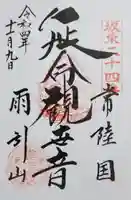 坂東二十四番
常陸国
延命観世音
雨引山
令和四年
十一月九日